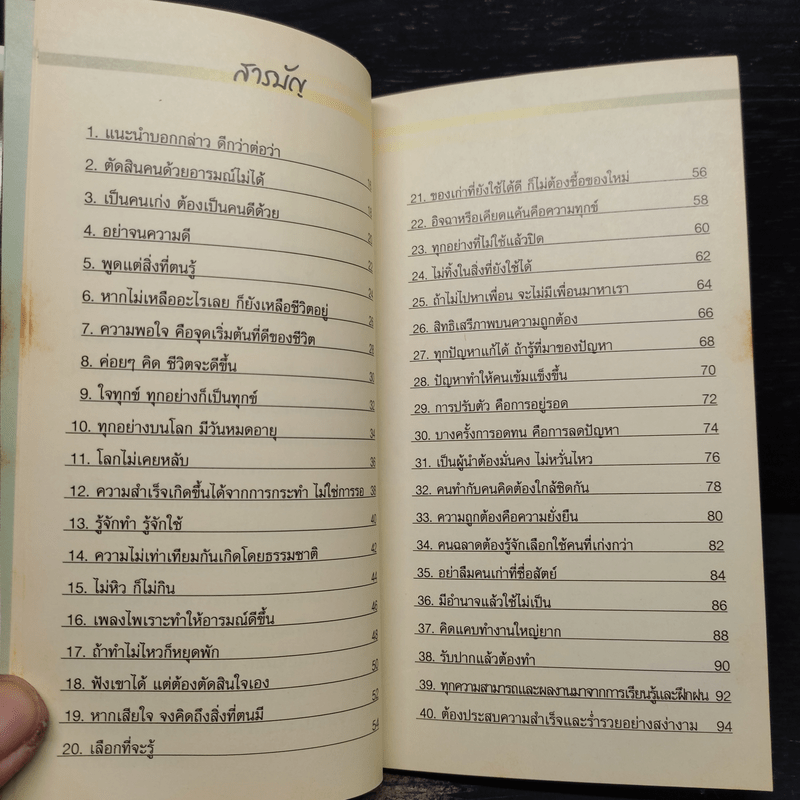 สารบัญ
1. แนะนำบอกกล่าว ดีกว่าต่อว่า
2. ตัดสินคนด้วยอารมณ์ไม่ได้
3. เป็นคนเก่ง ต้องเป็นคนดีด้วย
4. อย่าจนความดี
5. พูดแต่สิ่งที่ตนรู้
6. หากไม่เหลืออะไรเลย ก็ยังเหลือชีวิตอยู่ 26
7. ความพอใจ คือจุดเริ่มต้นที่ดีของชีวิต 28
8. ค่อยๆ คิด ชีวิตจะดีขึ้น 30
9. ใจทุกข์ ทุกอย่างก็เป็นทุกข์ 32
10. ทุกอย่างบนโลก มีวันหมดอายุ 34
11. โลกไม่เคยหลับ 36
12. ความสำเร็จเกิดขึ้นได้จากการกระทำ ไม่ใช่การรอ 38
13. รู้จักทำ รู้จักใช้ 40
14. ความไม่เท่าเทียมกันเกิดโดยธรรมชาติ 42
15. ไม่หิว ก็ไม่กิน 44
16. เพลงไพเราะทำให้อารมณ์ดีขึ้น 46
17. ถ้าทำไม่ไหวก็หยุดพัก 48
18. ฟังเขาได้ แต่ต้องตัดสินใจเอง 50
19. หากเสียใจ จงคิดถึงสิ่งที่ตนมี 52
20. เลือกที่จะรู้ 54
21. ของเก่าที่ยังใช้ได้ดี ก็ไม่ต้องซื้อของใหม่ 56
22. อิจฉาหรือเคียดแค้นคือความทุกข์ 58
23. ทุกอย่างที่ไม่ใช้แล้วปิด 60
24. ไม่ทิ้งในสิ่งที่ยังใช้ได้ 62
25. ถ้าไม่ไปหาเพื่อน จะไม่มีเพื่อนมาหาเรา 64
26. สิทธิเสรีภาพบนความถูกต้อง 66
27. ทุกปัญหาแก้ได้ ถ้ารู้ที่มาของปัญหา 68
28. ปัญหาทำให้คนเข้มแข็งขึ้น 70
29. การปรับตัว คือการอยู่รอด 72
30. บางครั้งการอดทน คือการลดปัญหา 74
31. เป็นผู้นำต้องมั่นคง ไม่หวั่นไหว 76
32. คนทำกับคนคิดต้องใกล้ชิดกัน 78
33. ความถูกต้องคือความยั่งยืน 80
34. คนฉลาดต้องรู้จักเลือกใช้คนที่เก่งกว่า 82
35. อย่าลืมคนเก่าที่ซื่อสัตย์ 84
36. มีอำนาจแล้วใช้ไม่เป็น 86
37. คิดแคบทำงานใหญ่ยาก 88
38. รับปากแล้วต้องทำ 90
39. ทุกความสามารถและผลงานมาจากการเรียนรู้และฝึกฝน 92
40. ต้องประสบความสำเร็จและร่ำรวยอย่างสง่างาม 94